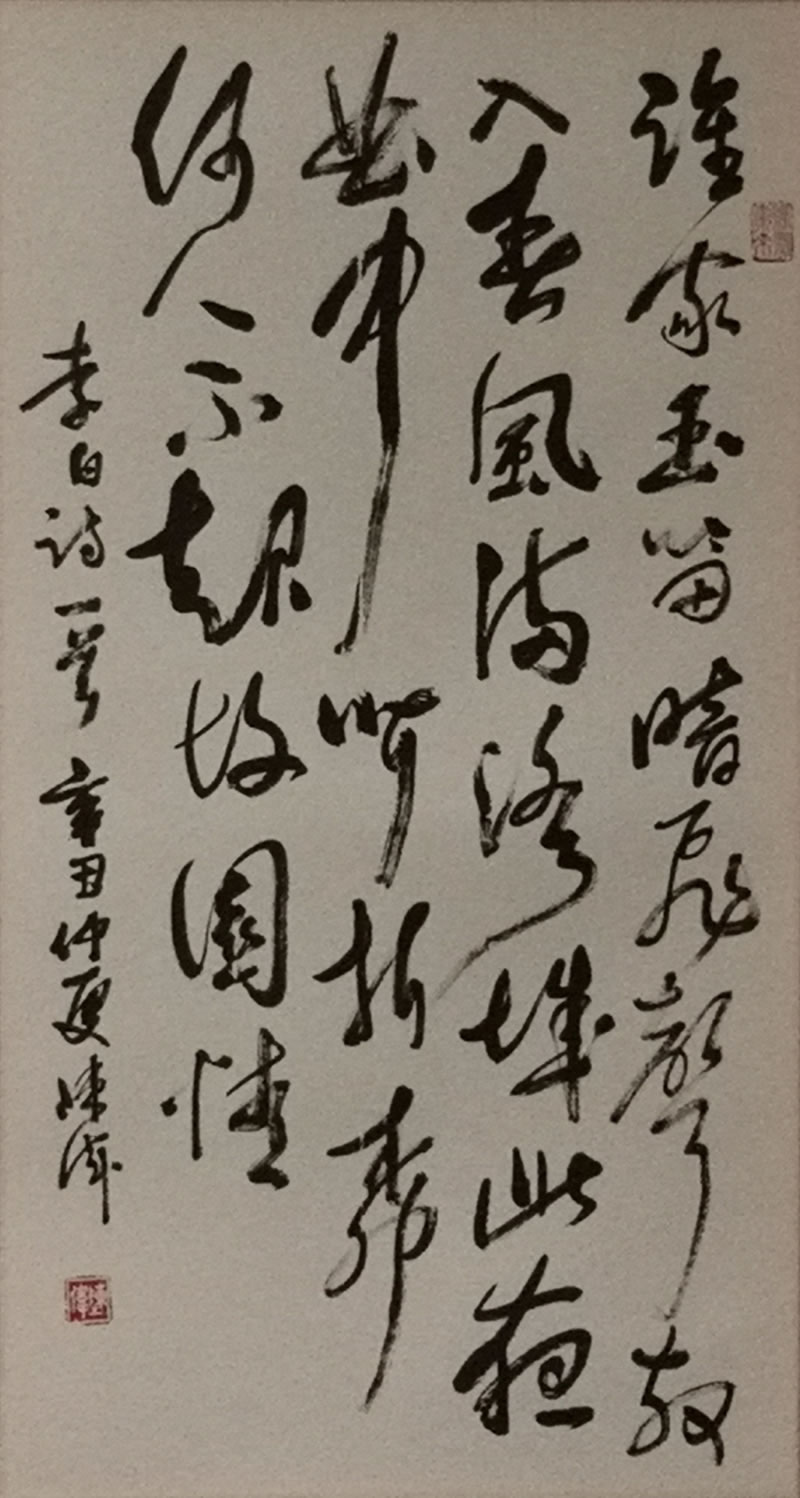 誰家玉笛暗飛聲散
入春風滿洛城此夜
曲中聞折柳
何人不起故園情
李白詩一首 辛丑仲夏